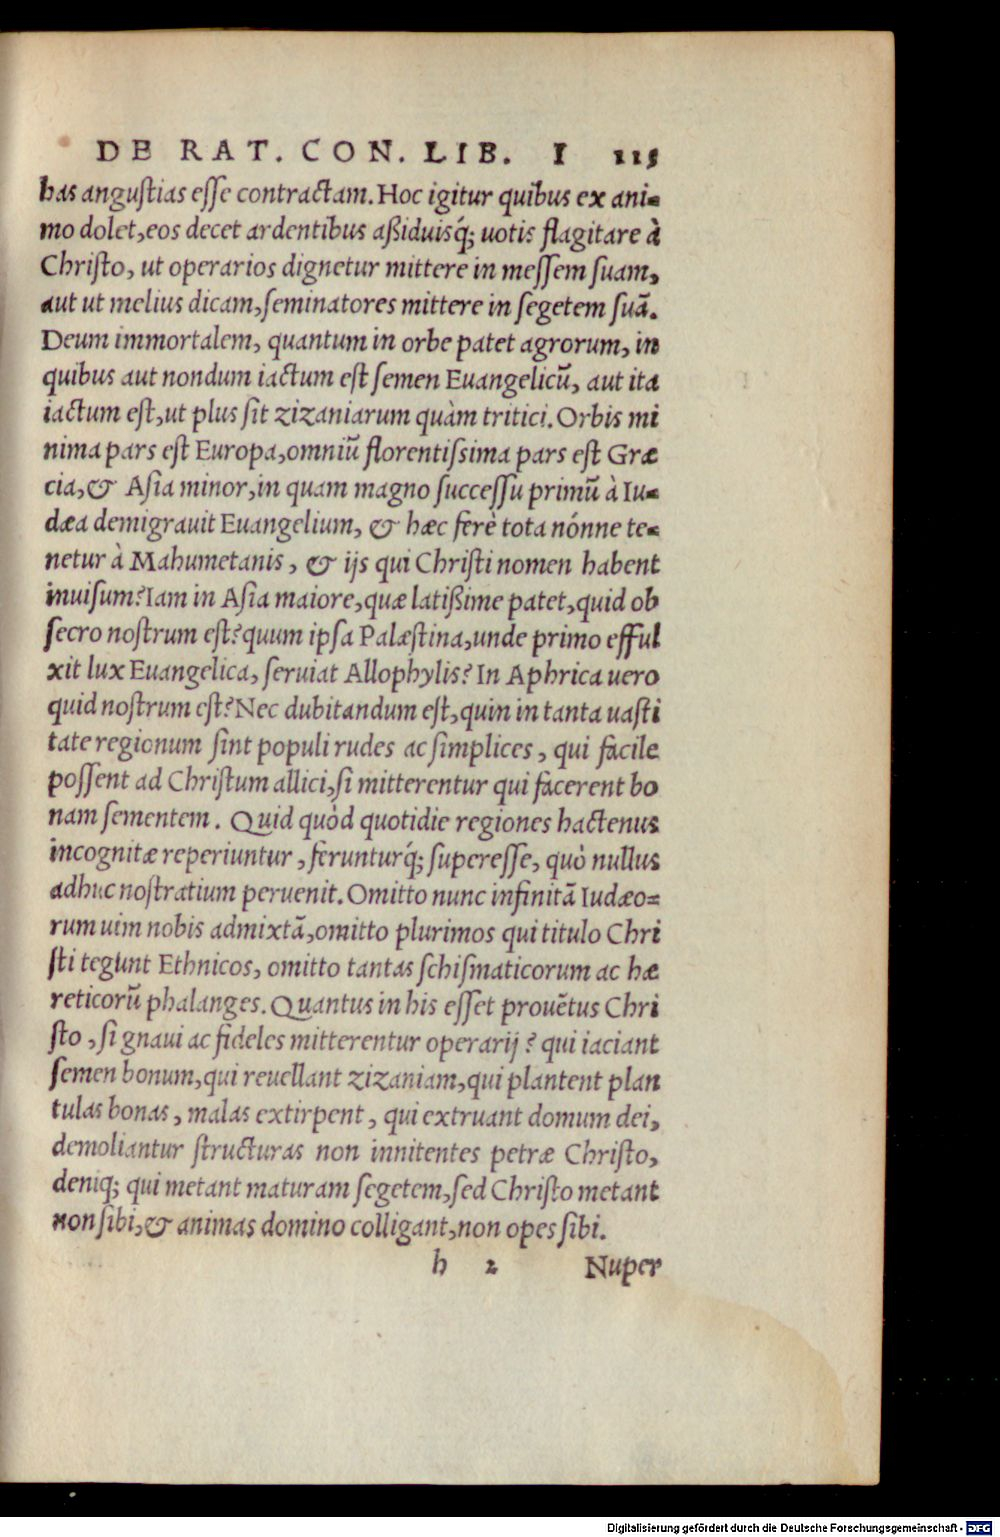 DE RAT. CON. LIB. I 115
has angustias esse contractam. Hoc igitur quibus ex ani-
mo dolet, eos decet ardentibus aßiduisq́; uotis flagitare à
Christo, ut operarios dignetur mittere in messem suam,
aut ut melius dicam, seminatores mittere in segetem suã.
Deum immortalem, quantum in orbe patet agrorum, in
quibus aut nondum iactum est semen Euangelicũ, aut ita
iactum est, ut plus sit zizaniarum quàm tritici. Orbis mi
nima pars est Europa, omniũ florentissima pars est Græ
cia, & Asia minor, in quam magno successu primũ à Iu-
dæa demigrauit Euangelium, & hæc ferè tota nónne te-
netur à Mahumetanis, & ijs qui Christi nomen habent
inuisum? Iam in Asia maiore, quæ latißime patet, quid ob
secro nostrum est? quum ipsa Palæstina, unde primo efful
xit lux Euangelica, seruiat Allophylis? In Aphrica uero
quid nostrum est? Nec dubitandum est, quin in tanta uasti
tate regionum sint populi rudes ac simplices, qui facile
possent ad Christum allici, si mitterentur qui facerent bo
nam sementem. Quid quòd quotidie regiones hactenus
incognitæ reperiuntur, ferunturq́; superesse, quò nullus
adhuc nostratium peruenit. Omitto nunc infinitã Iudæo-
rum uim nobis admixtã, omitto plurimos qui titulo Chri
sti tegunt Ethnicos, omitto tantas schismaticorum ac hæ
reticorũ phalanges. Quantus in his esset prouẽtus Chri
sto, si gnaui ac fideles mitterentur operarij? qui iaciant
semen bonum, qui reuellant zizaniam, qui plantent plan
tulas bonas, malas extirpent, qui extruant domum dei,
demoliantur structuras non innitentes petræ Christo,
deniq; qui metant maturam segetem, sed Christo metant
non sibi, & animas domino colligant, non opes sibi.
h 2 Nuper
Digitalisierung gefördert durch die Deutsche Forschungsgemeinschaft - DFG